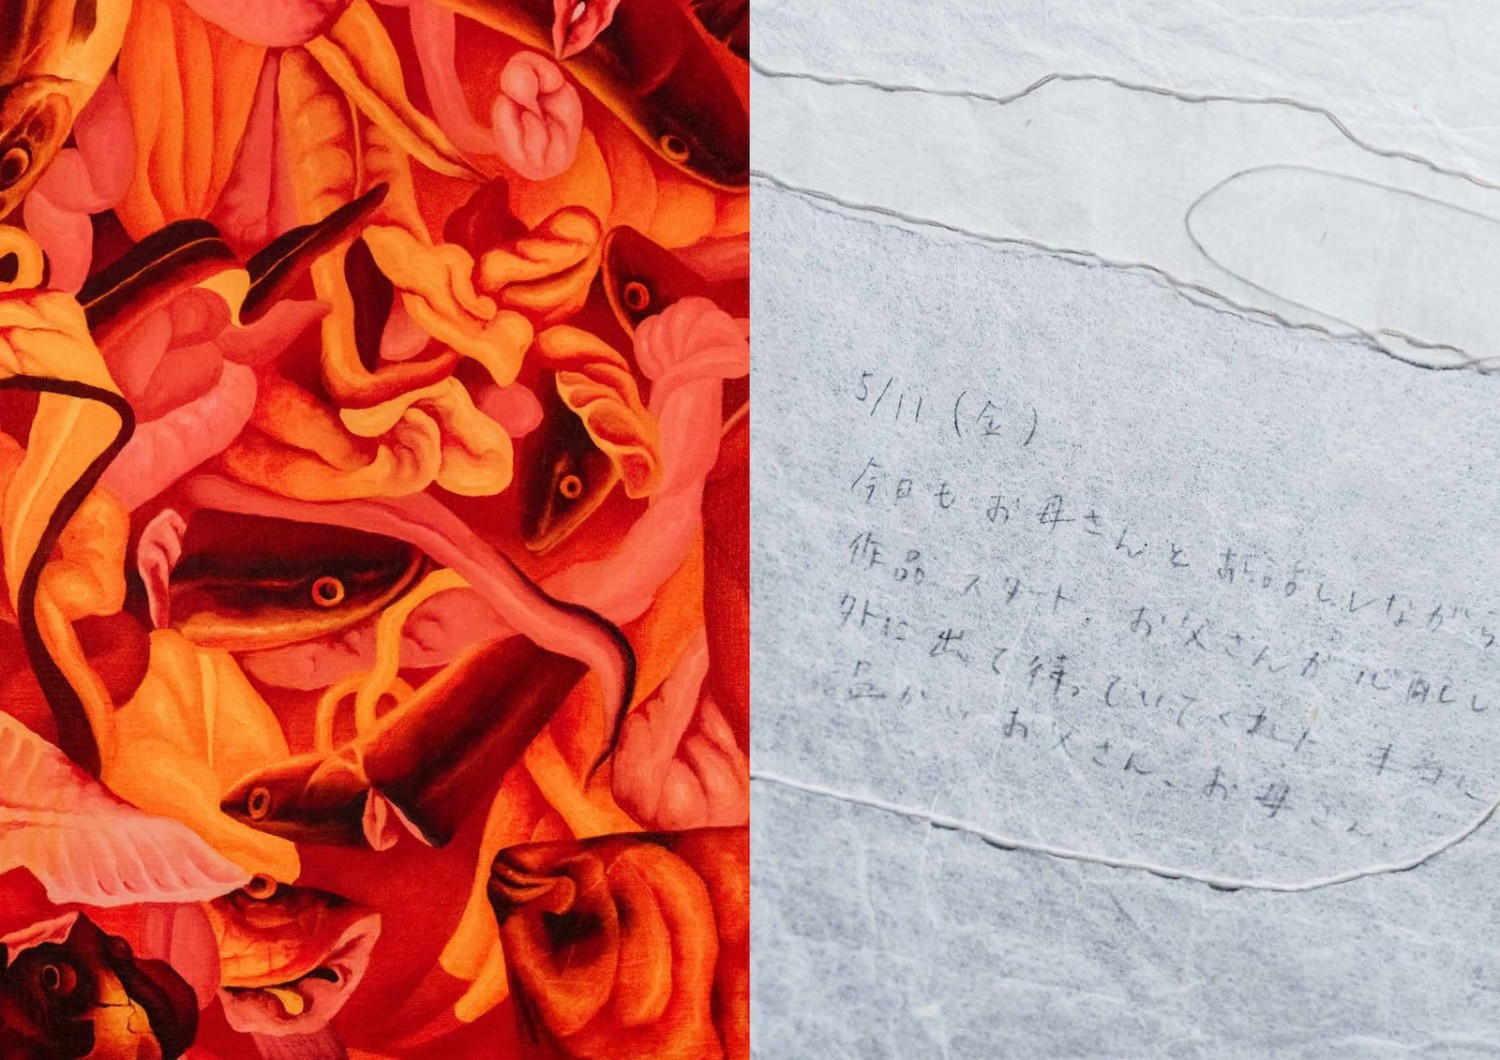 5/11 (金)
今日も お母さんと お話ししながら
作品 スタート。お父さんが 心配し
外に 出て 待っていてくれた 本当に
お父さん、お母さん